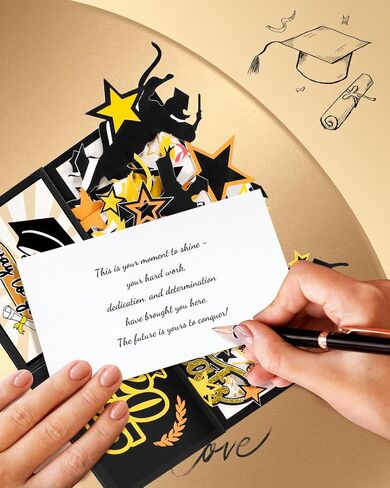 This is your moment to shine –
your hard work,
dedication, and determination
have brought you here.
The future is yours to conquer!
love